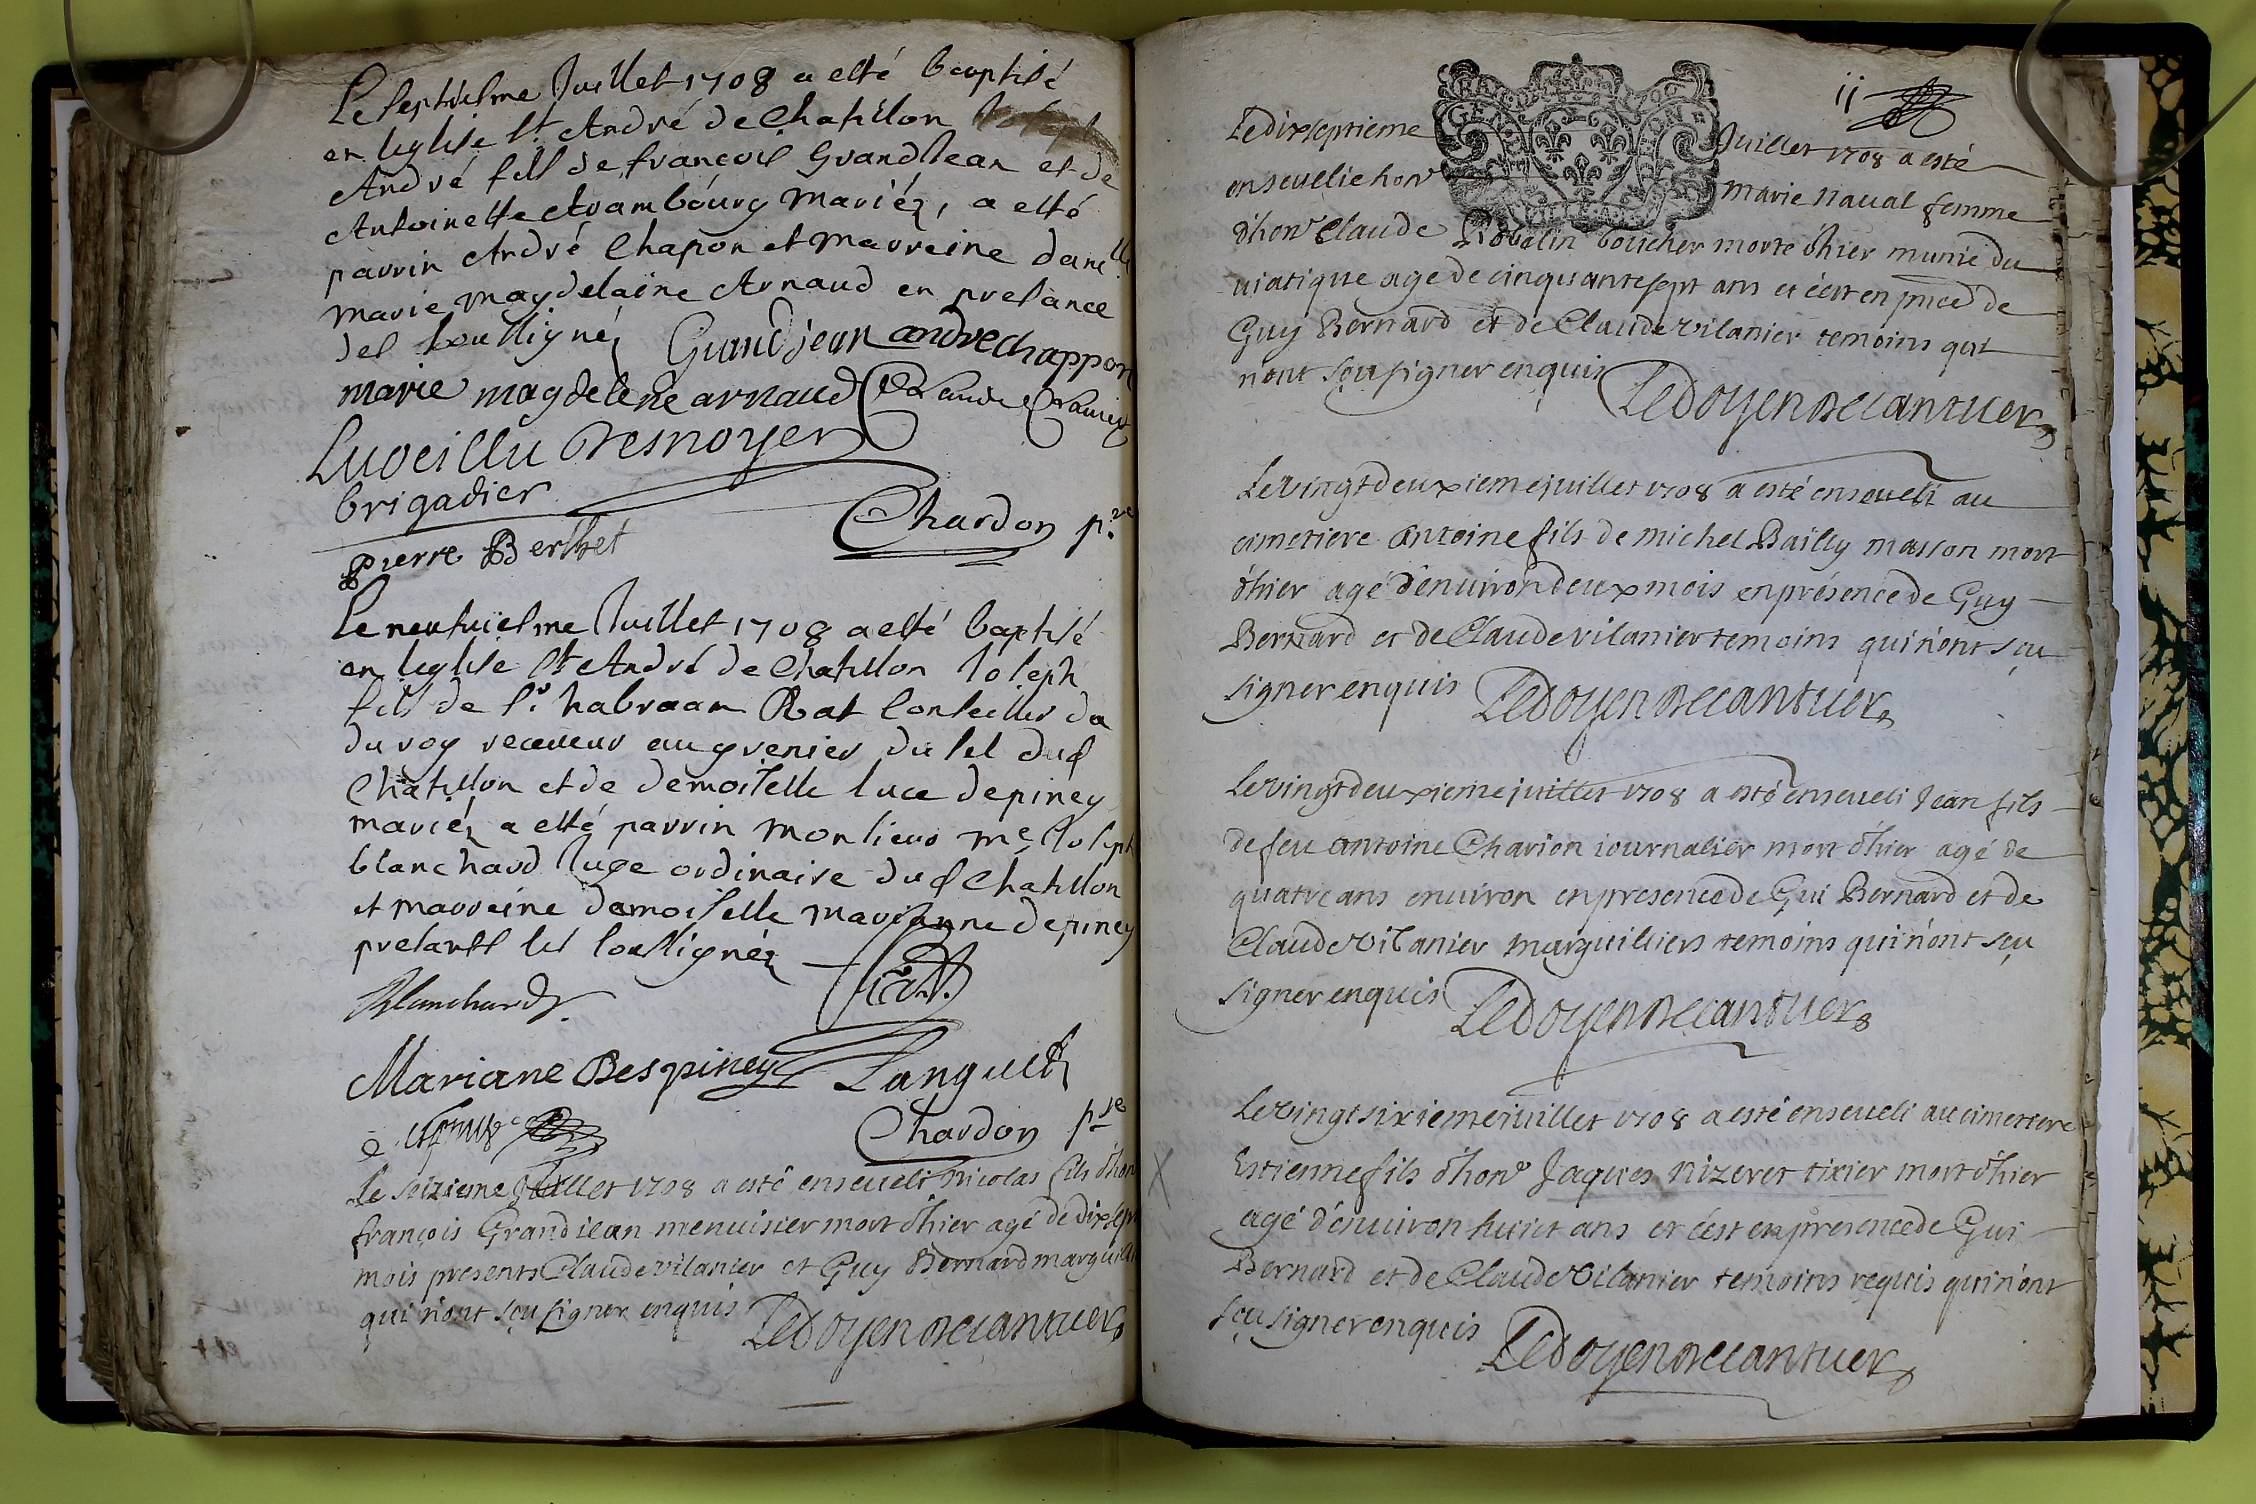 Le septiesme Juillet 1708 a esté baptisé
en leglise st André de Chatillon
André fils de françois Grandjean et de
Antoinette Arambourg mariéz, a esté
parrin André Chapon et marreine dam.lle
marie magdelaine Arnaud en presance
des soussignéz Grandjean andre chappon
marie magdelene arnaud
Desnoyer
brigadier
Chardon p.re
pierre Berthet
Le neufviesme Juillet 1708 a esté baptisé
en leglise st André de Chatillon Joseph
fils de sr. habraam Rat Conseiller du
du roy receveur au grenier du sel dud
Chatillon et de demoiselle luce depiney
mariéz a esté parrin monsieur me. Joseph
blanchard Juge ordinaire dud Chatillon
et marreine demoiselle marianne depiney
presants les soussignéz
Blanchard Rat
Mariane Despiney Languet
Chardon p.re
le seizieme Juillet 1708 a esté enseveli Nicolas fils d'hon
françois Grandjean menuisier mort d'hier agé de dix sept
mois presents Claude vilanier et Guy Bernard marguill
qui n'ont sçu signer enquis Ledoyen decantuer
ii
Le dix septieme Juillet 1708 a esté
ensevelie hon. marie Naval femme
d'hon. Claude Robolin boucher morte d'hier munie du
viatique age de cinquante sept ans et c'est en pnce de
Guy Bernard et de Claude vilanier temoins qui
n'ont sçu signer enquis Ledoyen decantuer
Le vingt deuxieme juillet 1708 a esté enseveli au
cimetiere antoine fils de michel Bailly masson mort
d'hier agé d'environ deux mois en présence de Guy
Bernard et de Claude vilanier temoins qui n'ont sçu
signer enquis Ledoyen decantuer
Le vingt deuxieme juillet 1708 a esté enseveli Jean fils
de feu antoine Charion journalier mort d'hier agé de
quatre ans environ en presence de Gui Bernard et de
Claude vilanier marguilliers temoins qui n'ont sçu
signer enquis Ledoyen decantuer
Le vingt sixieme juillet 1708 a esté enseveli au cimetiere
Estienne fils d'hon. Jaques Nizeret tixier mort d'hier
agé d'environ huict ans et c'est en presence de Gui
Bernard et de Claude vilanier temoins requis qui n'ont
sçu signer enquis Ledoyen decantuer